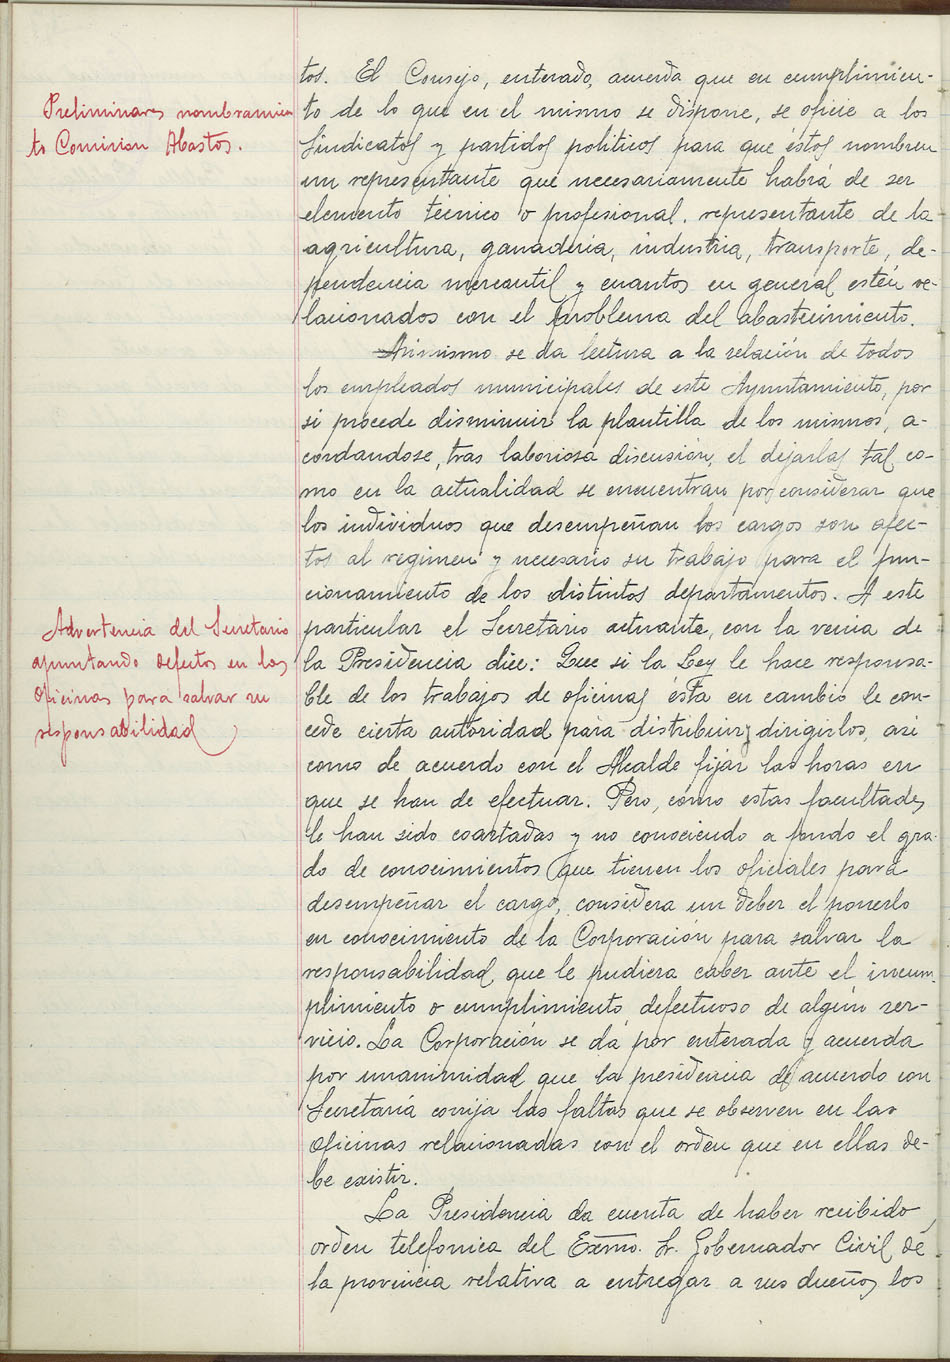 tos. El Consejo, enterado, acuerda que en cumplimien-
Preliminares nombramien
to de lo que en el mismo se dispone, se oficie a los
to Comision Abastos.
Sindicatos y partidos politicos para que éstos nombren
un representante que necesariamente habrá de ser
elemento técnico o profesional, representante de la
agricultura, ganaderia, industria, transporte, de-
pendencia mercantil y cuantos en general estén re-
lacionados con el problema del abastecimiento.
Asimismo se da lectura a la relación de todos
los empleados municipales de este Ayuntamiento, por
si procede disminuir la plantilla de los mismos, a-
cordandose, tras laboriosa discusión, el dejarlas tal co-
mo en la actualidad se encuentran por considerar que
los individuos que desempeñan los cargos son afec-
tos al regimen y necesario su trabajo para el fun-
cionamiento de los distintos departamentos. A este
Advertencia del Secretario
apuntando defectos en las
Oficinas para salvar su
responsabilidad
particular el Secretario actuante, con la venia de
la Presidencia dice: Que si la Ley le hace responsa-
ble de los trabajos de oficinas ésta en cambio le con-
cede cierta autoridad para distribuir y dirigirlos, así
como de acuerdo con el Alcalde fijar las horas en
que se han de efectuar. Pero, como estas facultades
le han sido coartadas y no conociendo a fondo el gra-
do de conocimientos que tienen los oficiales para
desempeñar el cargo, considera un deber el ponerlo
en conocimiento de la Corporación para salvar la
responsabilidad que le pudiera caber ante el incum-
plimiento o cumplimiento defectuoso de algún ser-
vicio. La Corporación se dá por enterada y acuerda
por unanimidad que la presidencia de acuerdo con
Secretaría corrija las faltas que se observen en las
Oficinas relacionadas con el orden que en ellas de-
be existir.
La Presidencia da cuenta de haber recibido
orden telefonica del Excmo. Sr. Gobernador Civil de
la provincia relativa a entregar a sus dueños los